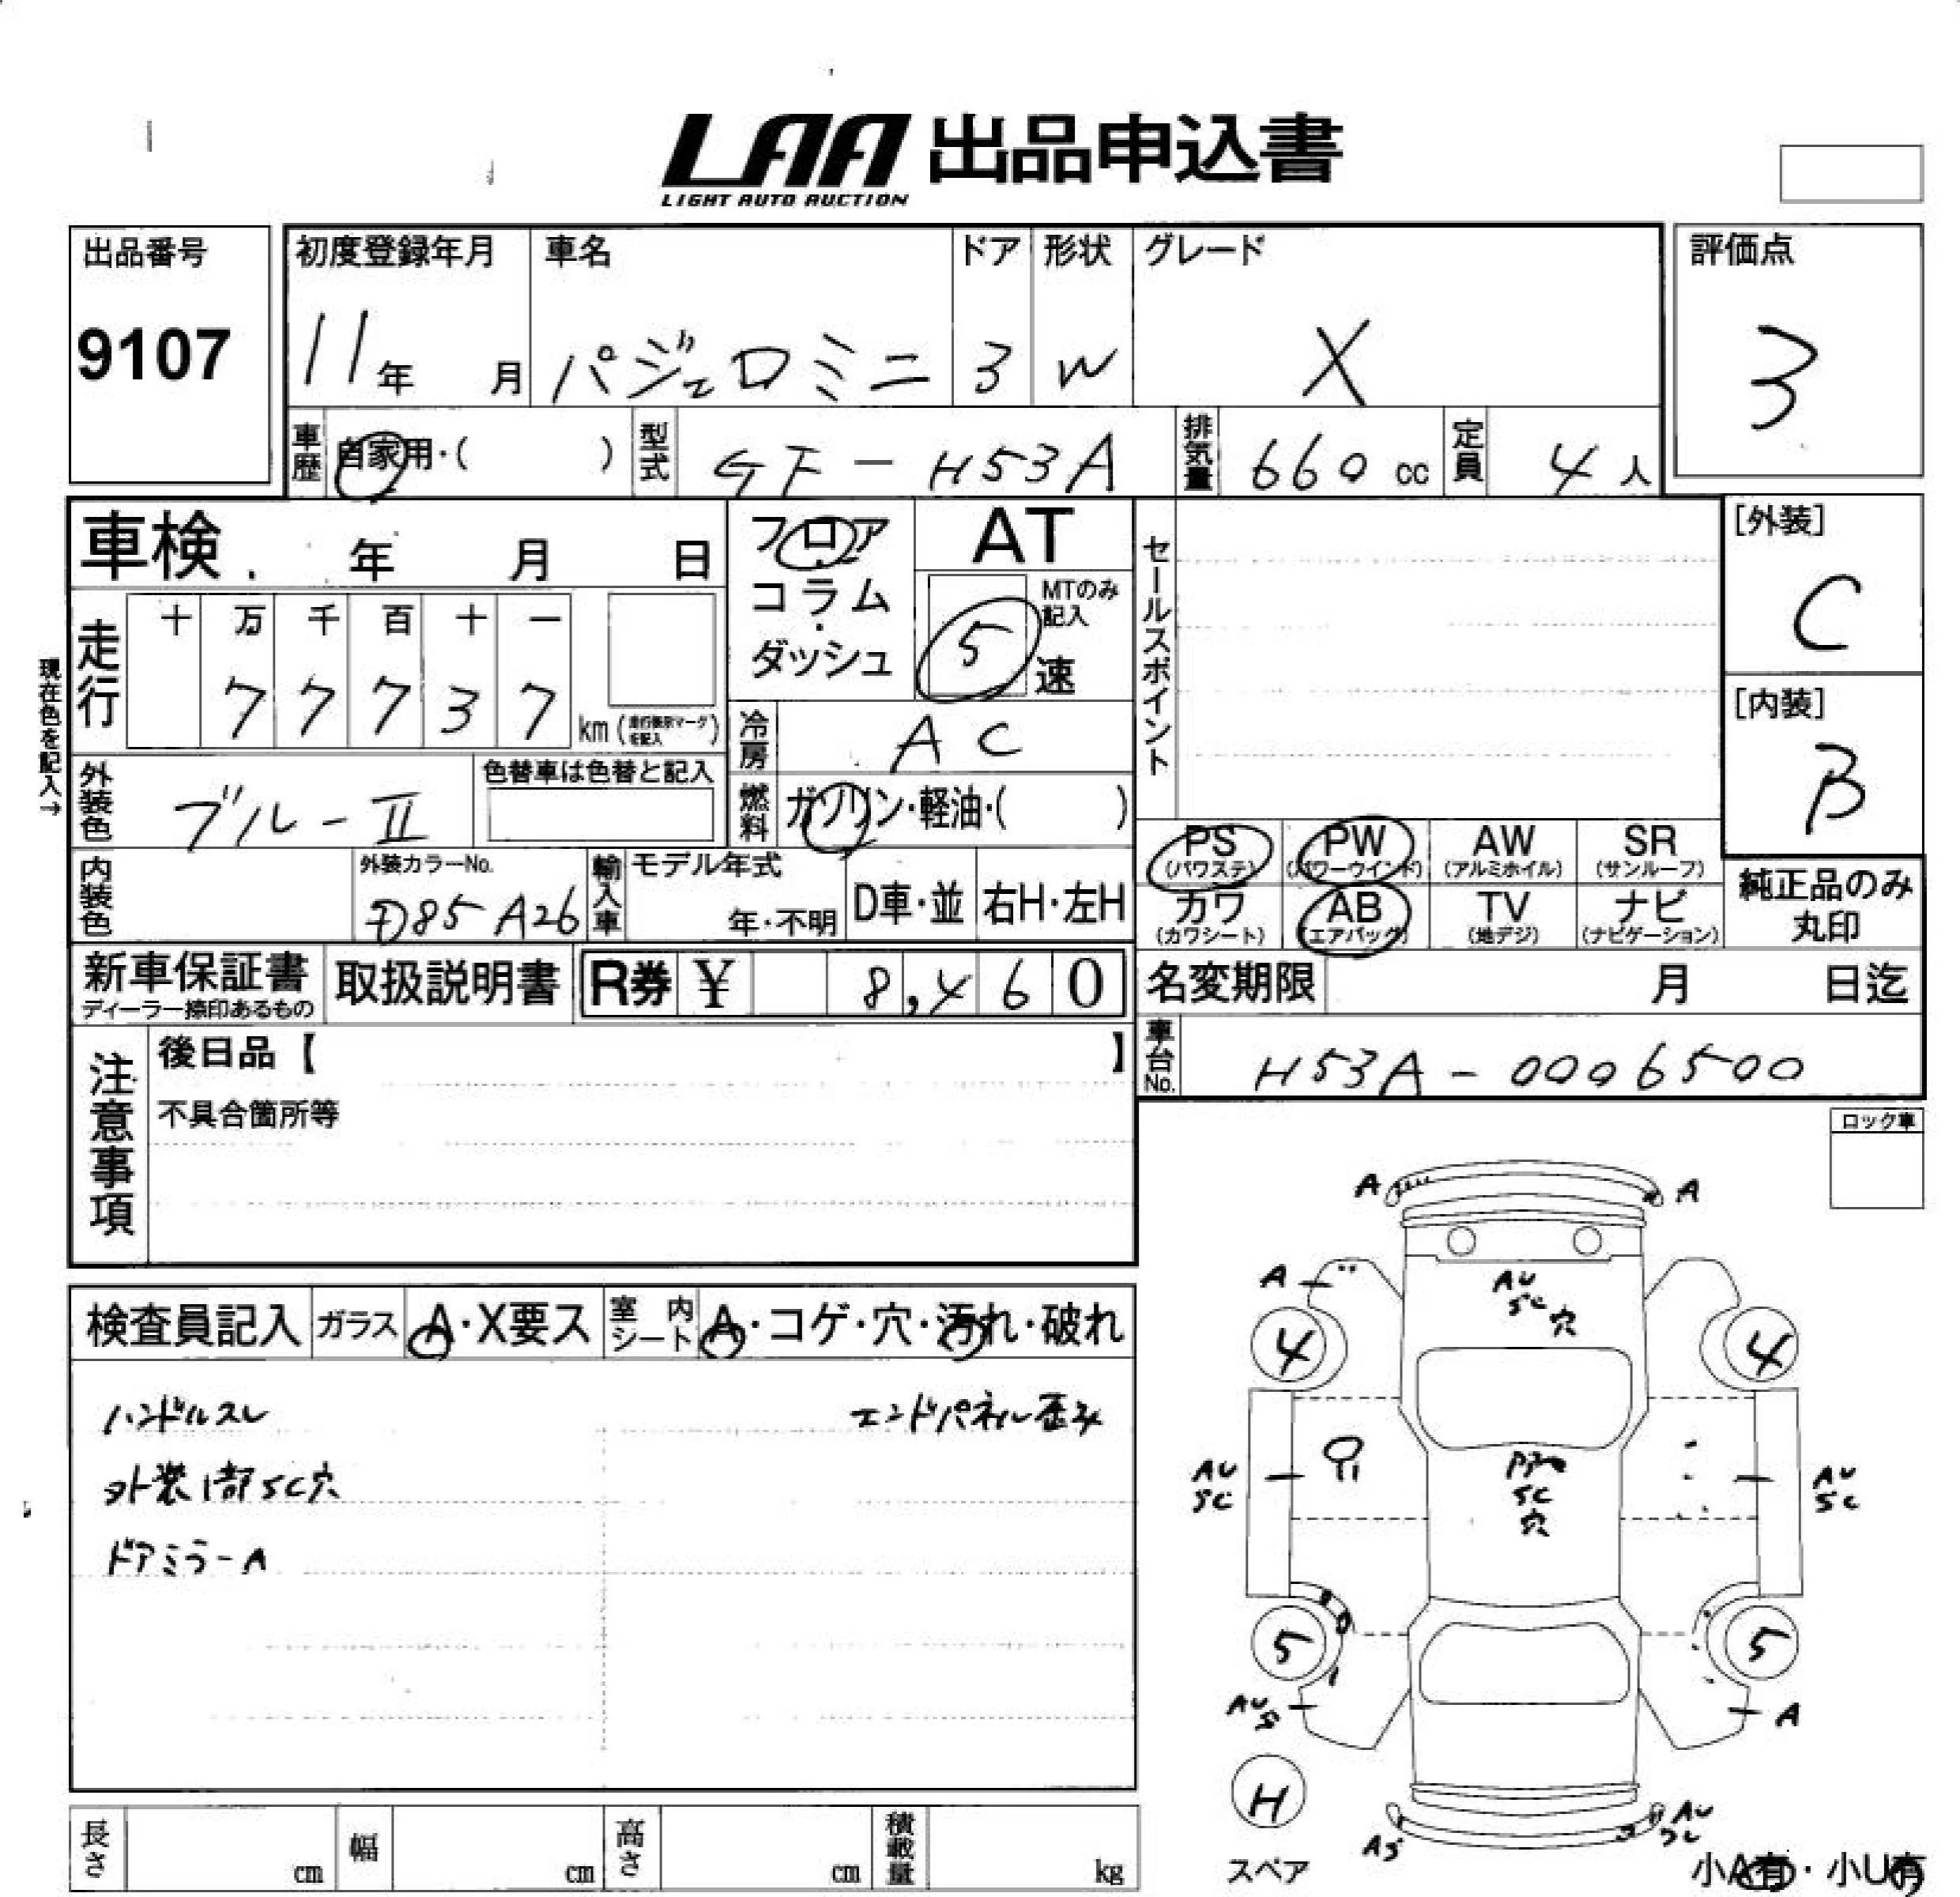 LAA 出品申込書
LIGHT AUTO AUCTION
出品番号
9107
初度登録年月
11年 月
車名
パジェロミニ
ドア
3
形状
W
グレード
X
評価点
3
車歴 自家用・( )
型式 GF-H53A
排気量 660 cc
定員 4人
車検 年 月 日
フロア
コラム
・
ダッシュ
AT
MTのみ記入
5速
セールスポイント
[外装]
C
[内装]
B
現在色を記入→
走行
十 万 千 百 十 一
7 7 7 3 7 km
冷房 AC
外装色 ブルーII
色替車は色替と記入
燃料 ガソリン・軽油・( )
PS (パワステ)
PW (パワーウインド)
AW (アルミホイル)
SR (サンルーフ)
カワ (カワシート)
AB (エアバッグ)
TV (地デジ)
ナビ (ナビゲーション)
純正品のみ
丸印
内装色
外装カラーNo.
D85 A26
輸入車
モデル年式
年・不明
D車・並
右H・左H
新車保証書
ディーラー捺印あるもの
取扱説明書
R券 ¥ 8,460
名変期限 月 日迄
車台No. H53A-0006500
注意事項
後日品【 】
不具合箇所等
ロック車
検査員記入
ガラス A・X要ス
室内シート A・コゲ・穴・汚れ・破れ
ハンドルスレ
エンドパネル歪み
外装1部SC穴
ドアミラーA
A A
A
AU
SC 穴
4 4
AU
SC
SC
穴
AU
SC
5 5
AU
S
A
H
スペア
AS
AU
SC
小A有・小U有
長さ cm
幅 cm
高さ cm
積載量 kg